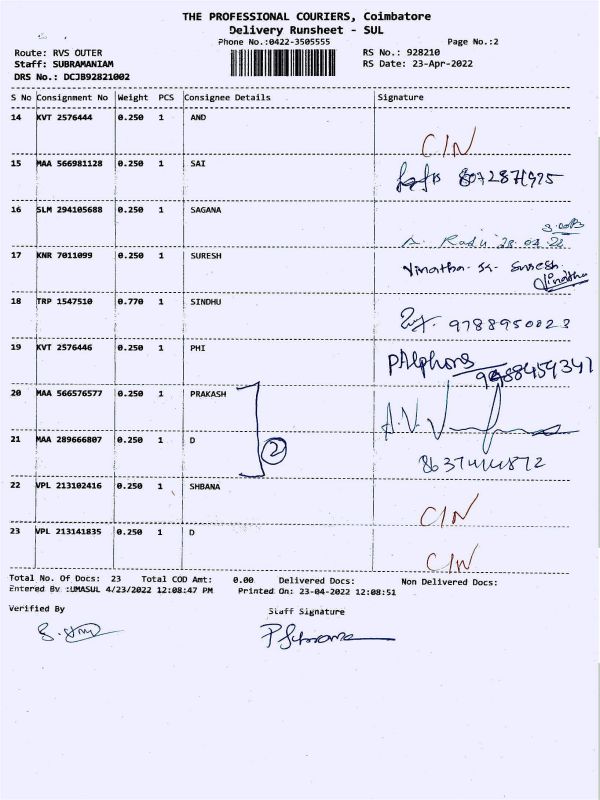 THE PROFESSIONAL COURIERS, Coimbatore
Delivery Runsheet - SUL
Phone No.:0422-3505555
Page No.:2
Route: RVS OUTER
RS No.: 928210
Staff: SUBRAMANIAM
RS Date: 23-Apr-2022
DRS No.: DCJB92821002
S No Consignment No Weight PCS Consignee Details Signature
14 KVT 2576444 0.250 1 AND
CIN
15 MAA 566981128 0.250 1 SAI
16 SLM 294105688 0.250 1 SAGANA
17 KNR 7011099 0.250 1 SURESH
18 TRP 1547510 0.770 1 SINDHU
9788950023
19 KVT 2576446 0.250 1 PHI
PAlphons
20 MAA 566576577 0.250 1 PRAKASH
21 MAA 289666807 0.250 1 D
2
22 VPL 213102416 0.250 1 SHBANA
CIN
23 VPL 213141835 0.250 1 D
CIN
Total No. Of Docs: 23 Total COD Amt: 0.00 Delivered Docs: Non Delivered Docs:
Entered By :UMASUL 4/23/2022 12:08:47 PM Printed On: 23-04-2022 12:08:51
Verified By
Staff Signature